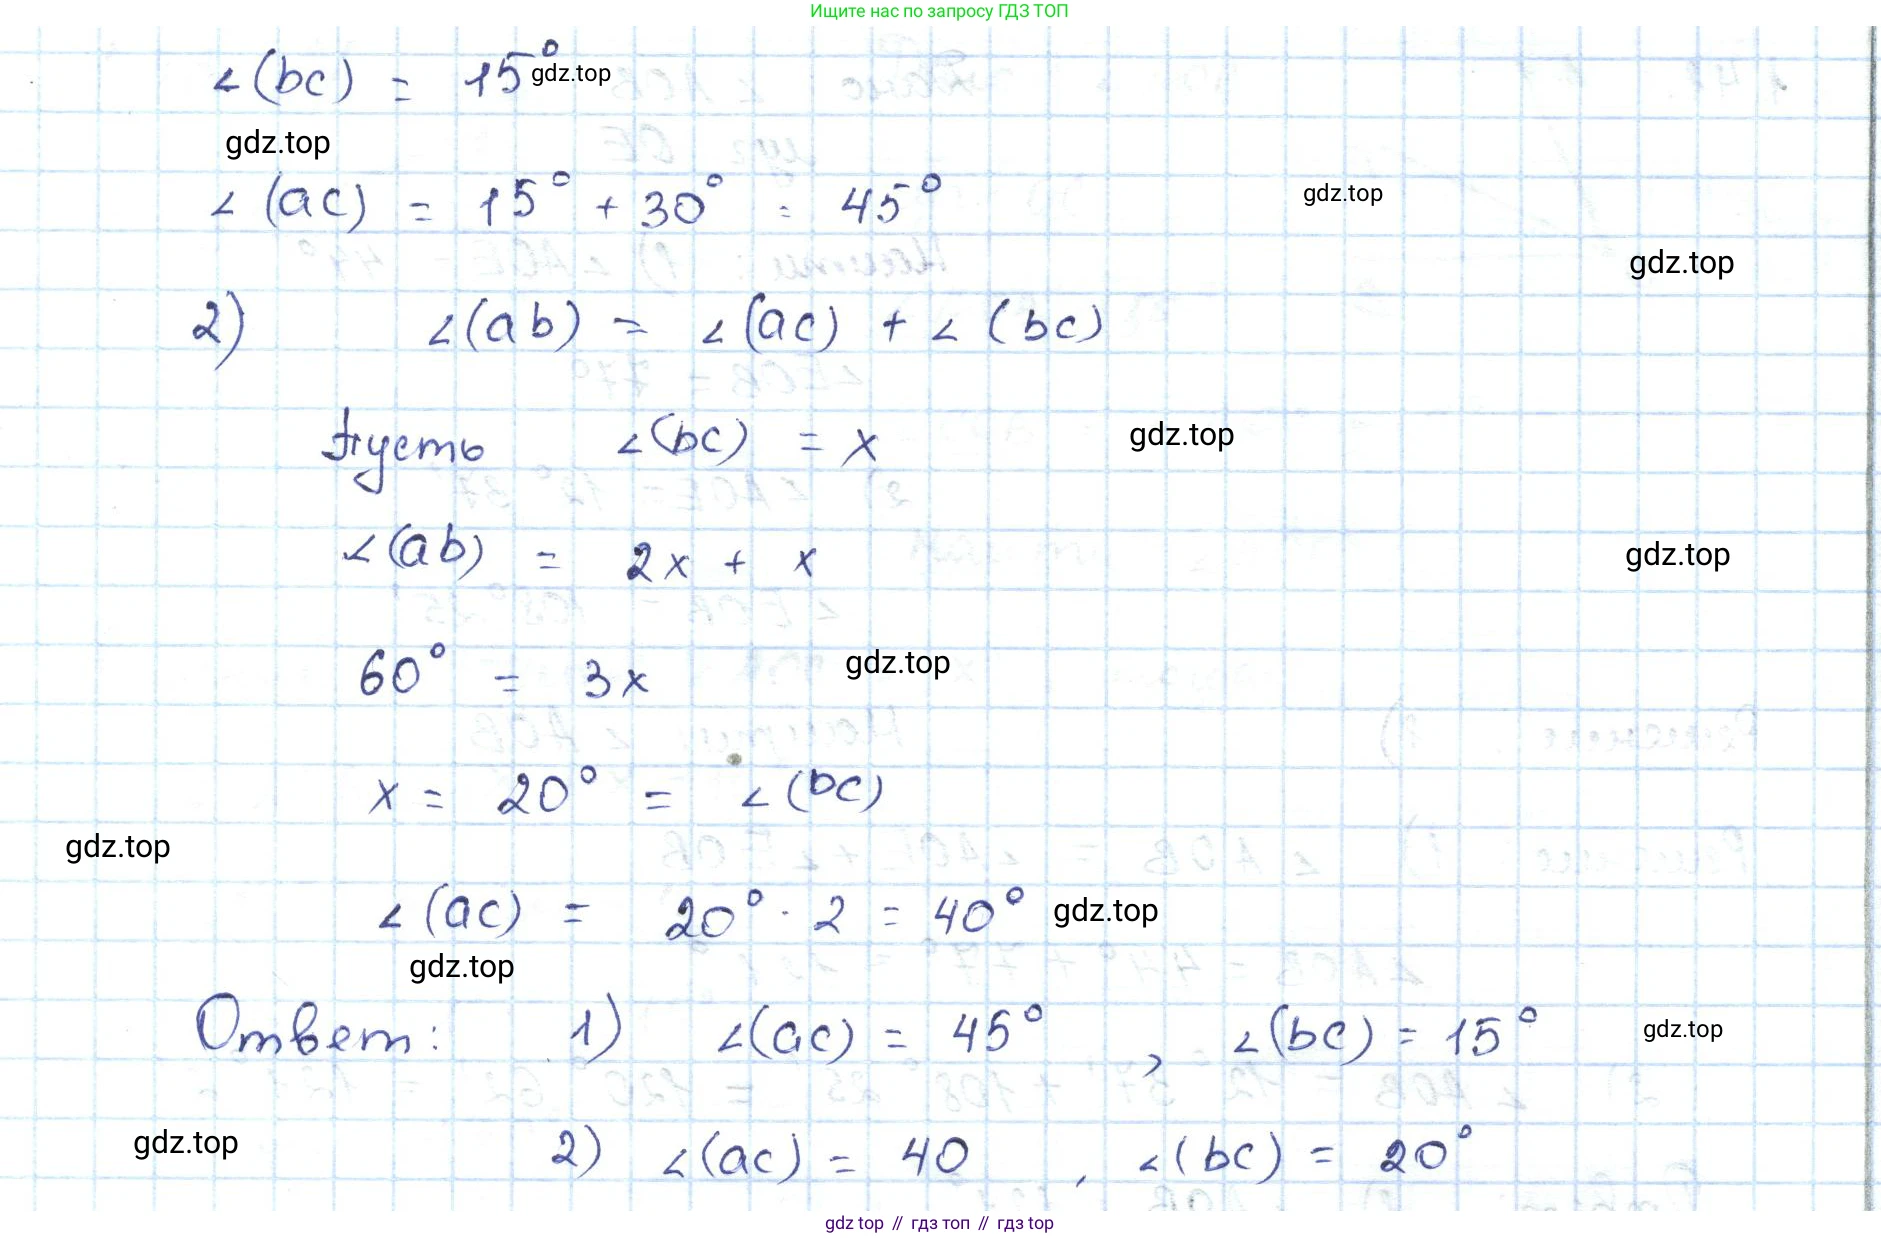 Ищите нас по запросу ГДЗ ТОП
∠(bc) = 15° gdz.top
gdz.top
∠(ac) = 15° + 30° = 45° gdz.top
gdz.top
2) ∠(ab) = ∠(ac) + ∠(bc)
Пусть ∠(bc) = x gdz.top
∠(ab) = 2x + x gdz.top
60° = 3x gdz.top
x = 20° = ∠(bc)
gdz.top
∠(ac) = 20° · 2 = 40° gdz.top
gdz.top
Ответ: 1) ∠(ac) = 45°, ∠(bc) = 15° gdz.top
gdz.top 2) ∠(ac) = 40, ∠(bc) = 20°
gdz top // гдз топ // gdz top